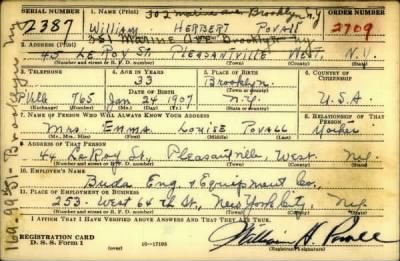 SERIAL NUMBER 1. NAME (Print) 302 marine ave Brooklyn N.Y. ORDER NUMBER
2387 William HERBERT POVALL 2709
(First) (Middle) (Last)
351 Marine Ave Brooklyn Ny
2. ADDRESS (Print)
45 LE ROY ST PLEASANTVILLE WEST. N.Y.
(Number and street or R. F. D. number) (Town) (County) (State)
3. TELEPHONE 4. AGE IN YEARS 5. PLACE OF BIRTH 6. COUNTRY OF CITIZENSHIP
33 Brooklyn
DATE OF BIRTH (Town or county)
PVlle 765 Jan 24 1907 N.Y. U.S.A.
(Exchange) (Number) (Mo.) (Day) (Yr.) (State or country)
7. NAME OF PERSON WHO WILL ALWAYS KNOW YOUR ADDRESS 8. RELATIONSHIP OF THAT PERSON
Mrs. EMMA LOUISE POVALL
(Mr., Mrs., Miss) (First) (Middle) (Last)
9. ADDRESS OF THAT PERSON
44 LeRoy St., Pleasantville, West. Ny.
(Number and street or R. F. D. number) (Town) (County) (State)
10. EMPLOYER'S NAME
Buda Eng. & Equipment Co.
11. PLACE OF EMPLOYMENT OR BUSINESS
253 West 64th St, New York City, Ny.
(Number and street or R. F. D. number) (Town) (County) (State)
I AFFIRM THAT I HAVE VERIFIED ABOVE ANSWERS AND THAT THEY ARE TRUE.
REGISTRATION CARD
D. S. S. Form 1 (over) 16—17105 William H. Povall